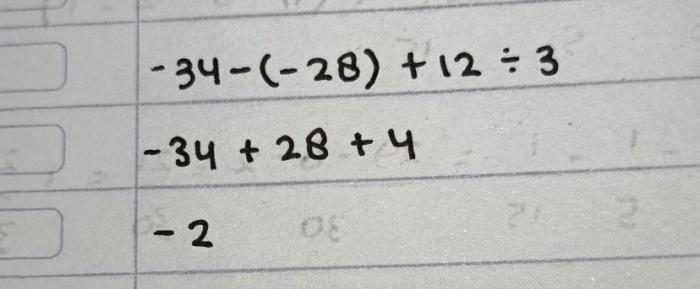 -34-(-28) + 12 ÷ 3
-34 + 28 + 4
- 2